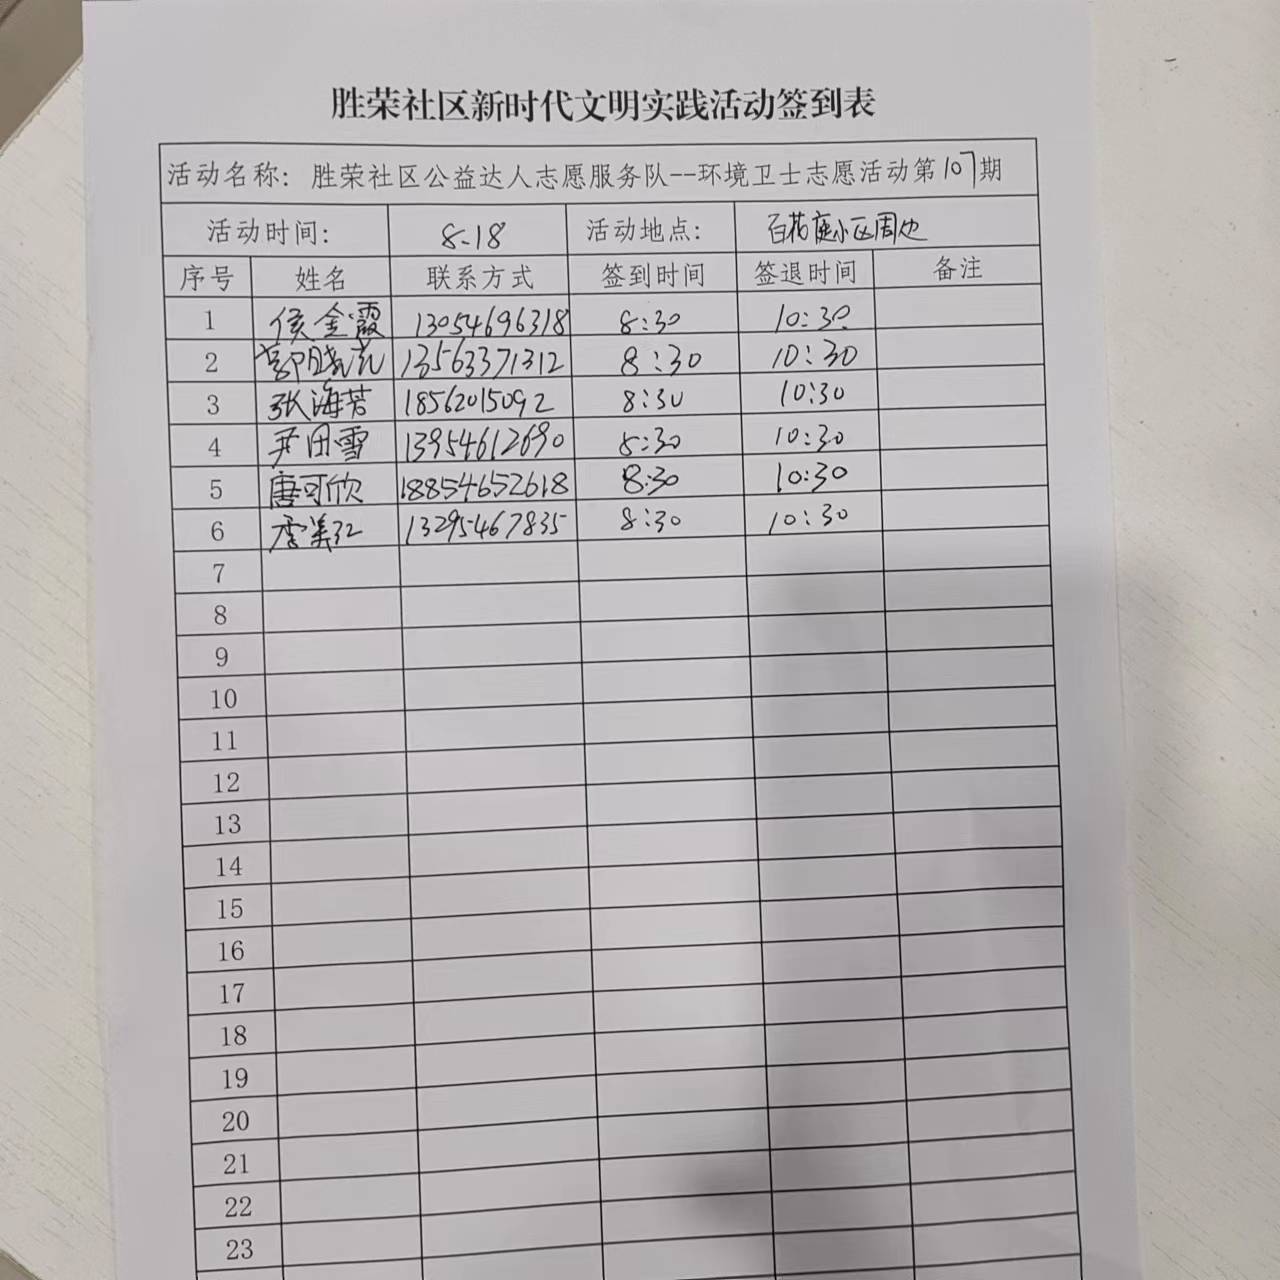 胜荣社区新时代文明实践活动签到表
活动名称：胜荣社区公益达人志愿服务队--环境卫士志愿活动第107期
活动时间： 8.18 活动地点： 百花庭小区周边
序号 姓名 联系方式 签到时间 签退时间 备注
1 侯金霞 13054696318 8:30 10:30
2 13563371312 8:30 10:30
3 张海芳 18562015092 8:30 10:30
4 尹田雪 13954612690 8:30 10:30
5 唐可欣 18854652618 8:30 10:30
6 李美红 13295467835 8:30 10:30
7
8
9
10
11
12
13
14
15
16
17
18
19
20
21
22
23